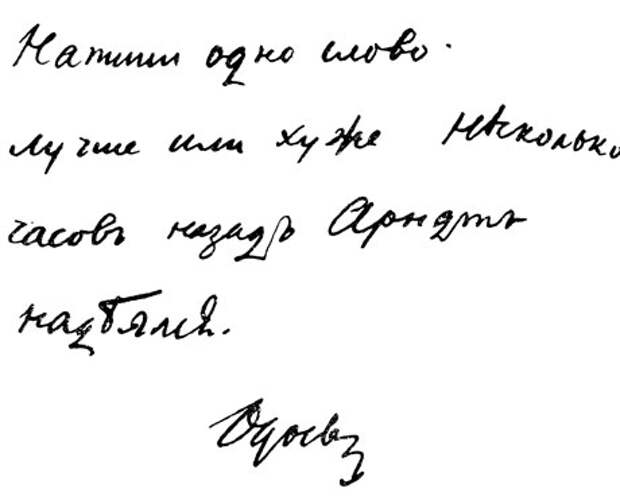 Напиши одно слово.
лучше или хуже Нѣсколько
часовъ назадъ Арндтъ
надѣялся.
Одоевъ